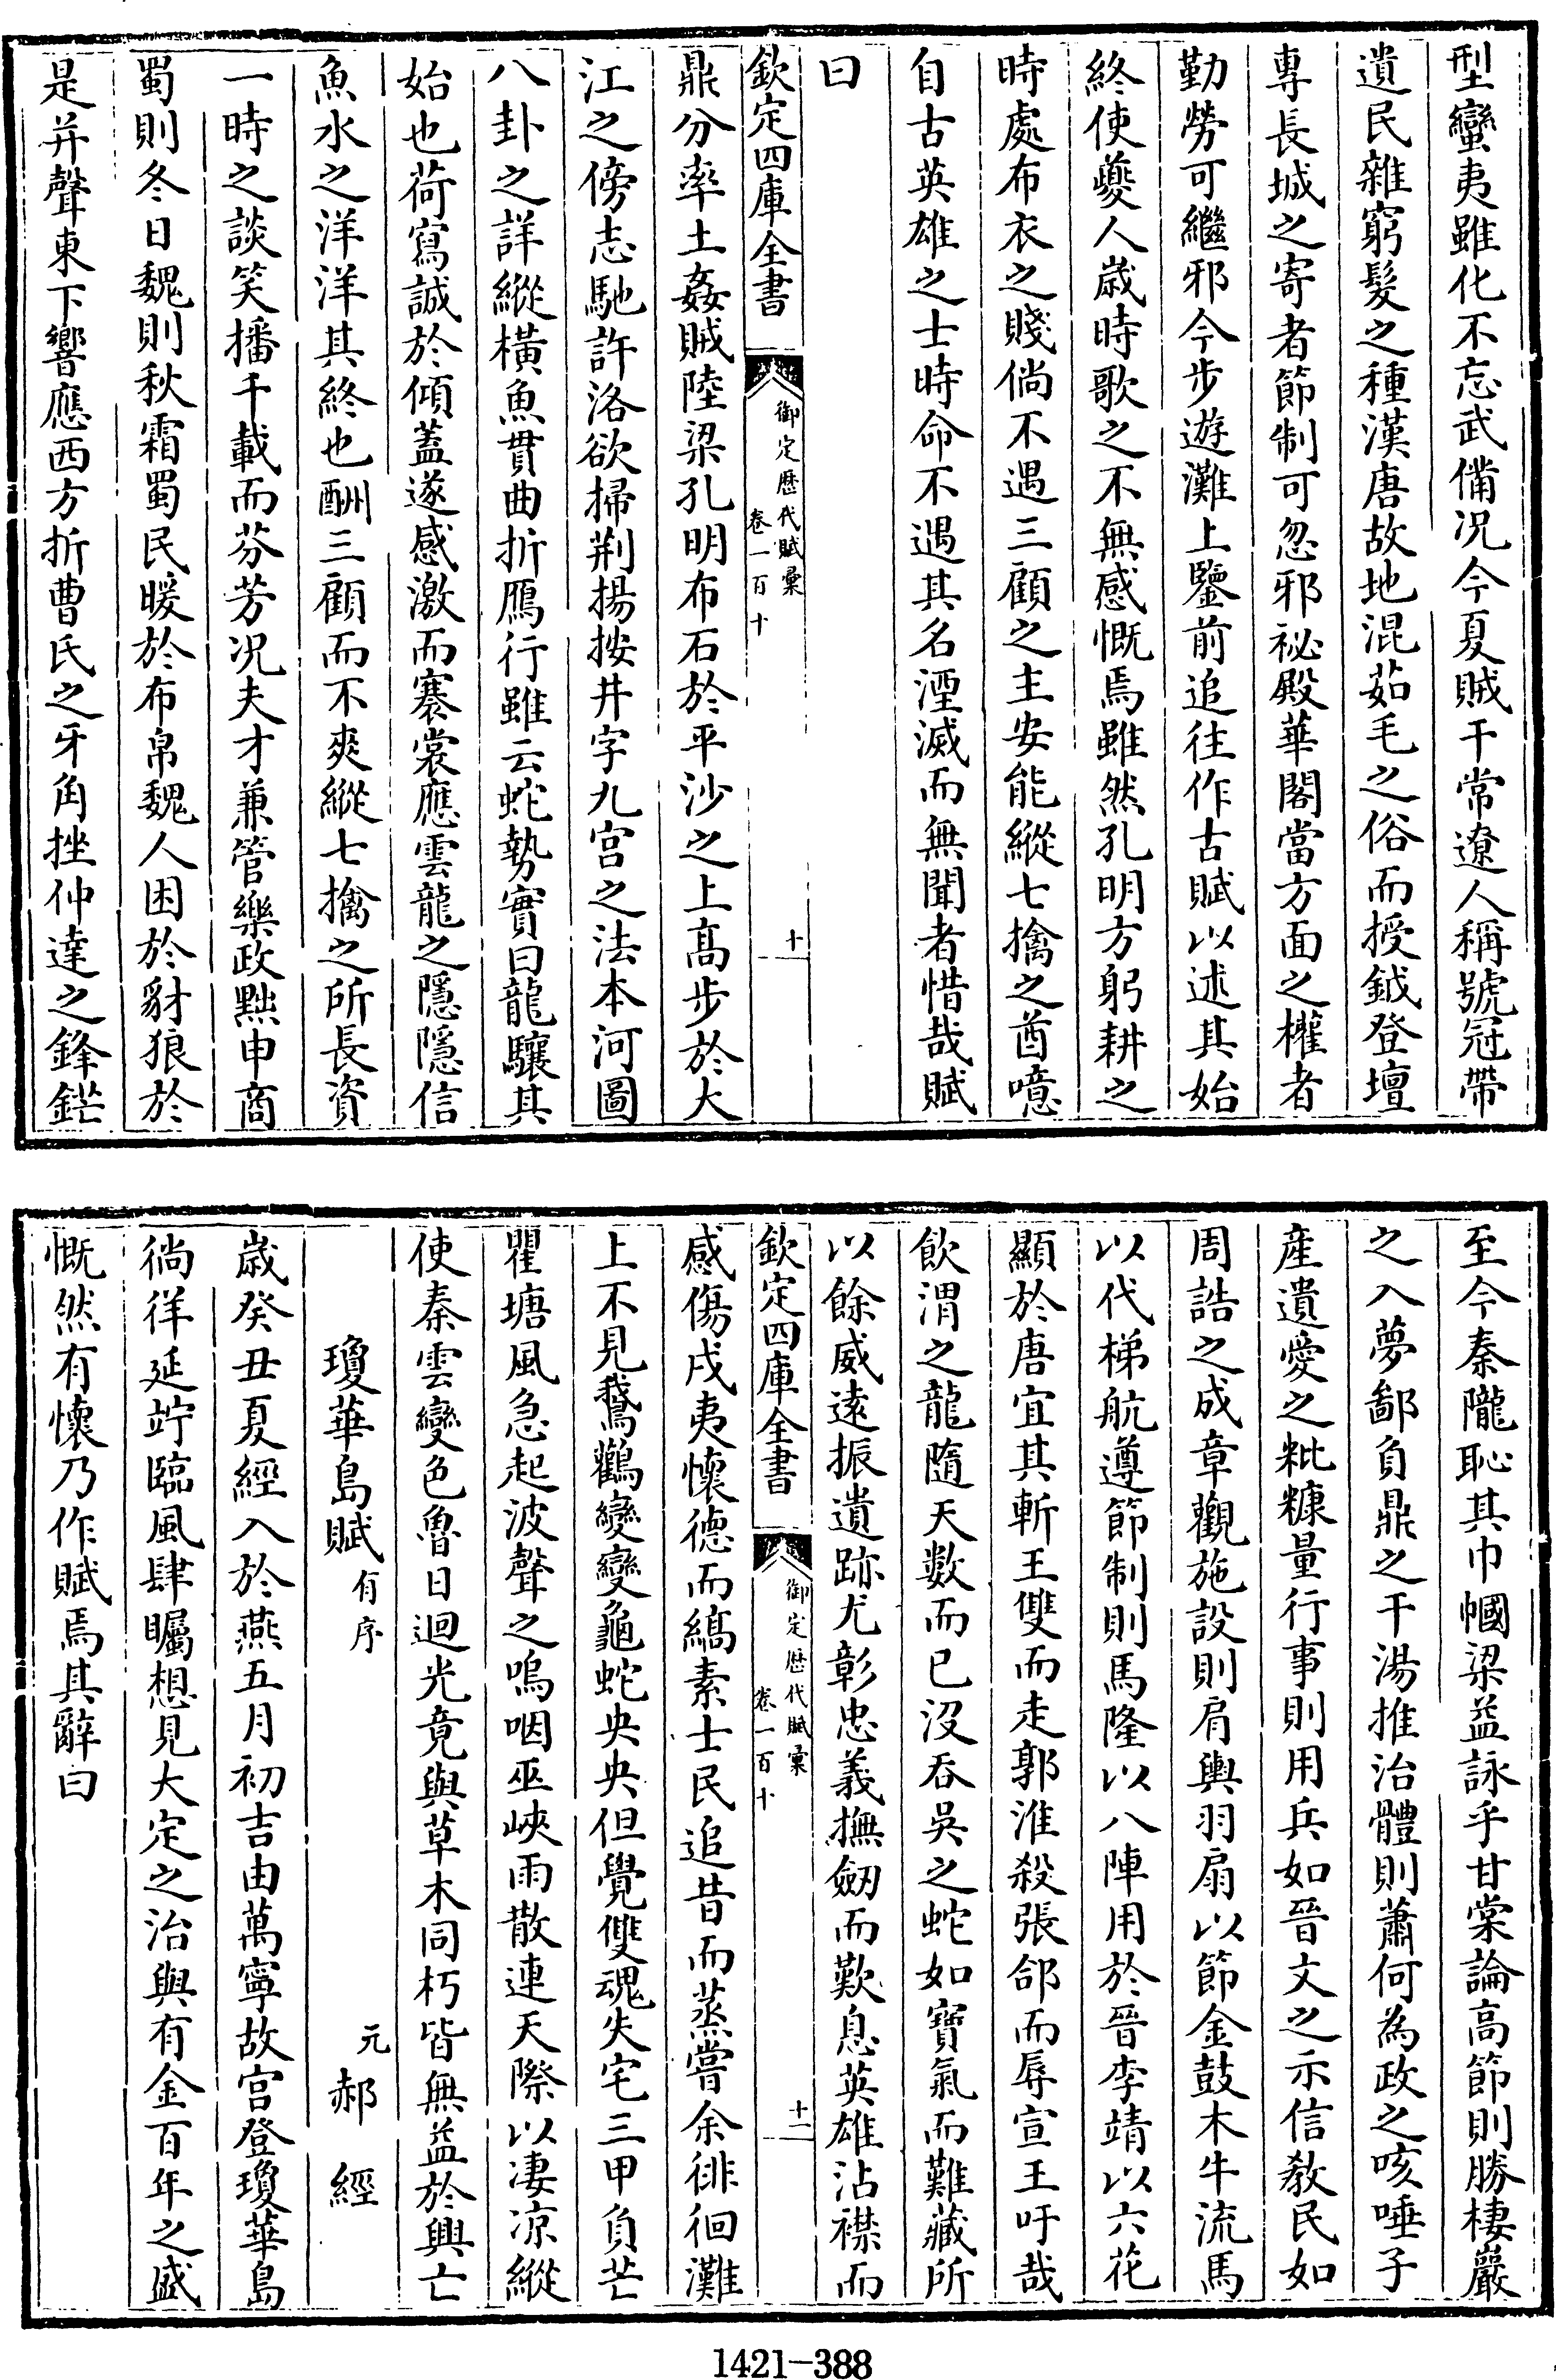 型蠻夷雖化不忘武備况今夏賊干常遼人稱號冠帶
遺民雜窮髮之種漢唐故地混茹毛之俗而授鉞登壇
專長城之寄者節制可忽邪祕殿華閣當方面之權者
勤勞可繼邪今步遊灘上鑒前追往作古賦以述其始
終使夔人歲時歌之不無感慨焉雖然孔明方躬耕之
時處布衣之賤倘不遇三顧之主安能縱七擒之酋噫
自古英雄之士時命不遇其名湮滅而無聞者惜哉賦
曰
欽定四庫全書
御定歷代賦彙
卷一百十
十
鼎分率土姦賊陸梁孔明布石於平沙之上高步於大
江之傍志馳許洛欲掃荆揚按井字九宮之法本河圖
八卦之詳縱橫魚貫曲折鴈行雖云蛇勢實曰龍驤其
始也荷寫誠於傾蓋遂感激而褰裳應雲龍之隱隱信
魚水之洋洋其終也酬三顧而不爽縱七擒之所長資
一時之談笑播千載而芬芳况夫才兼管樂政黜申商
蜀則冬日魏則秋霜蜀民暖於布帛魏人困於豺狼於
是并聲東下響應西方折曹氏之牙角挫仲達之鋒鋩
至今秦隴恥其巾幗梁益詠乎甘棠論高節則勝棲巖
之入夢鄙負鼎之干湯推治體則蕭何為政之咳唾子
産遺愛之粃糠量行事則用兵如晉文之示信教民如
周誥之成章觀施設則肩輿羽扇以節金鼓木牛流馬
以代梯航遵節制則馬隆以八陣用於晉李靖以六花
顯於唐宜其斬王雙而走郭淮殺張郃而辱宣王吁哉
飲渭之龍隨天數而已沒吞吳之蛇如寶氣而難藏所
以餘威遠振遺跡尤彰忠義撫劒而歎息英雄沾襟而
欽定四庫全書
御定歷代賦彙
卷一百十
十一
感傷戌夷懷德而縞素士民追昔而蒸嘗余徘徊灘
上不見鵞鸛變變龜蛇央央但覺雙魂失宅三甲負芒
瞿塘風急起波聲之嗚咽巫峽雨散連天際以凄凉縱
使秦雲變色魯日迴光竟與草木同朽皆無益於興亡
瓊華島賦有序
元郝經
歲癸丑夏經入於燕五月初吉由萬寧故宮登瓊華島
徜徉延竚臨風肆矚想見大定之治與有金百年之盛
慨然有懷乃作賦焉其辭曰
1421-388